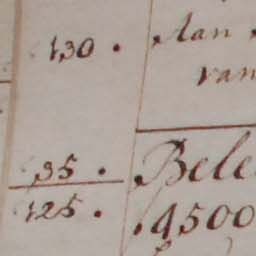 130. Aan
van
35. Bele
125. 4500